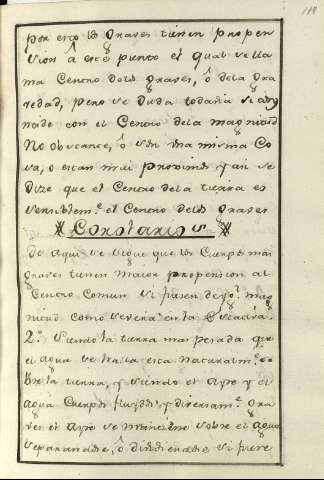 118
por esso los graves tienen propen
sion â este punto el qual se lla
ma Centro delos graves, ô dela gra
vedad, pero se duda todavia si coyn
side con el Centro dela magnitud
No obstante, ô son una misma Co
sa, o estan mui proximos y asi se
dize que el Centro dela tierra es
sensiblem.e el Centro delos graves
Corolarios
De aqui se sigue que los Cuerpos mas
graves tienen maior propension al
Centro Comun si fuesen de ygl. mag
nitud como se vera en la
2.o Siendo la tierra mas pesada que
el agua se halla esta naturalm.te so
bre la tierra, y siendo el Ayre y el
agua Cuerpos fluydos y diversam.te Gra
ves el Ayre se mantiene sobre el agua
separandose, ô dividiendose si fuere